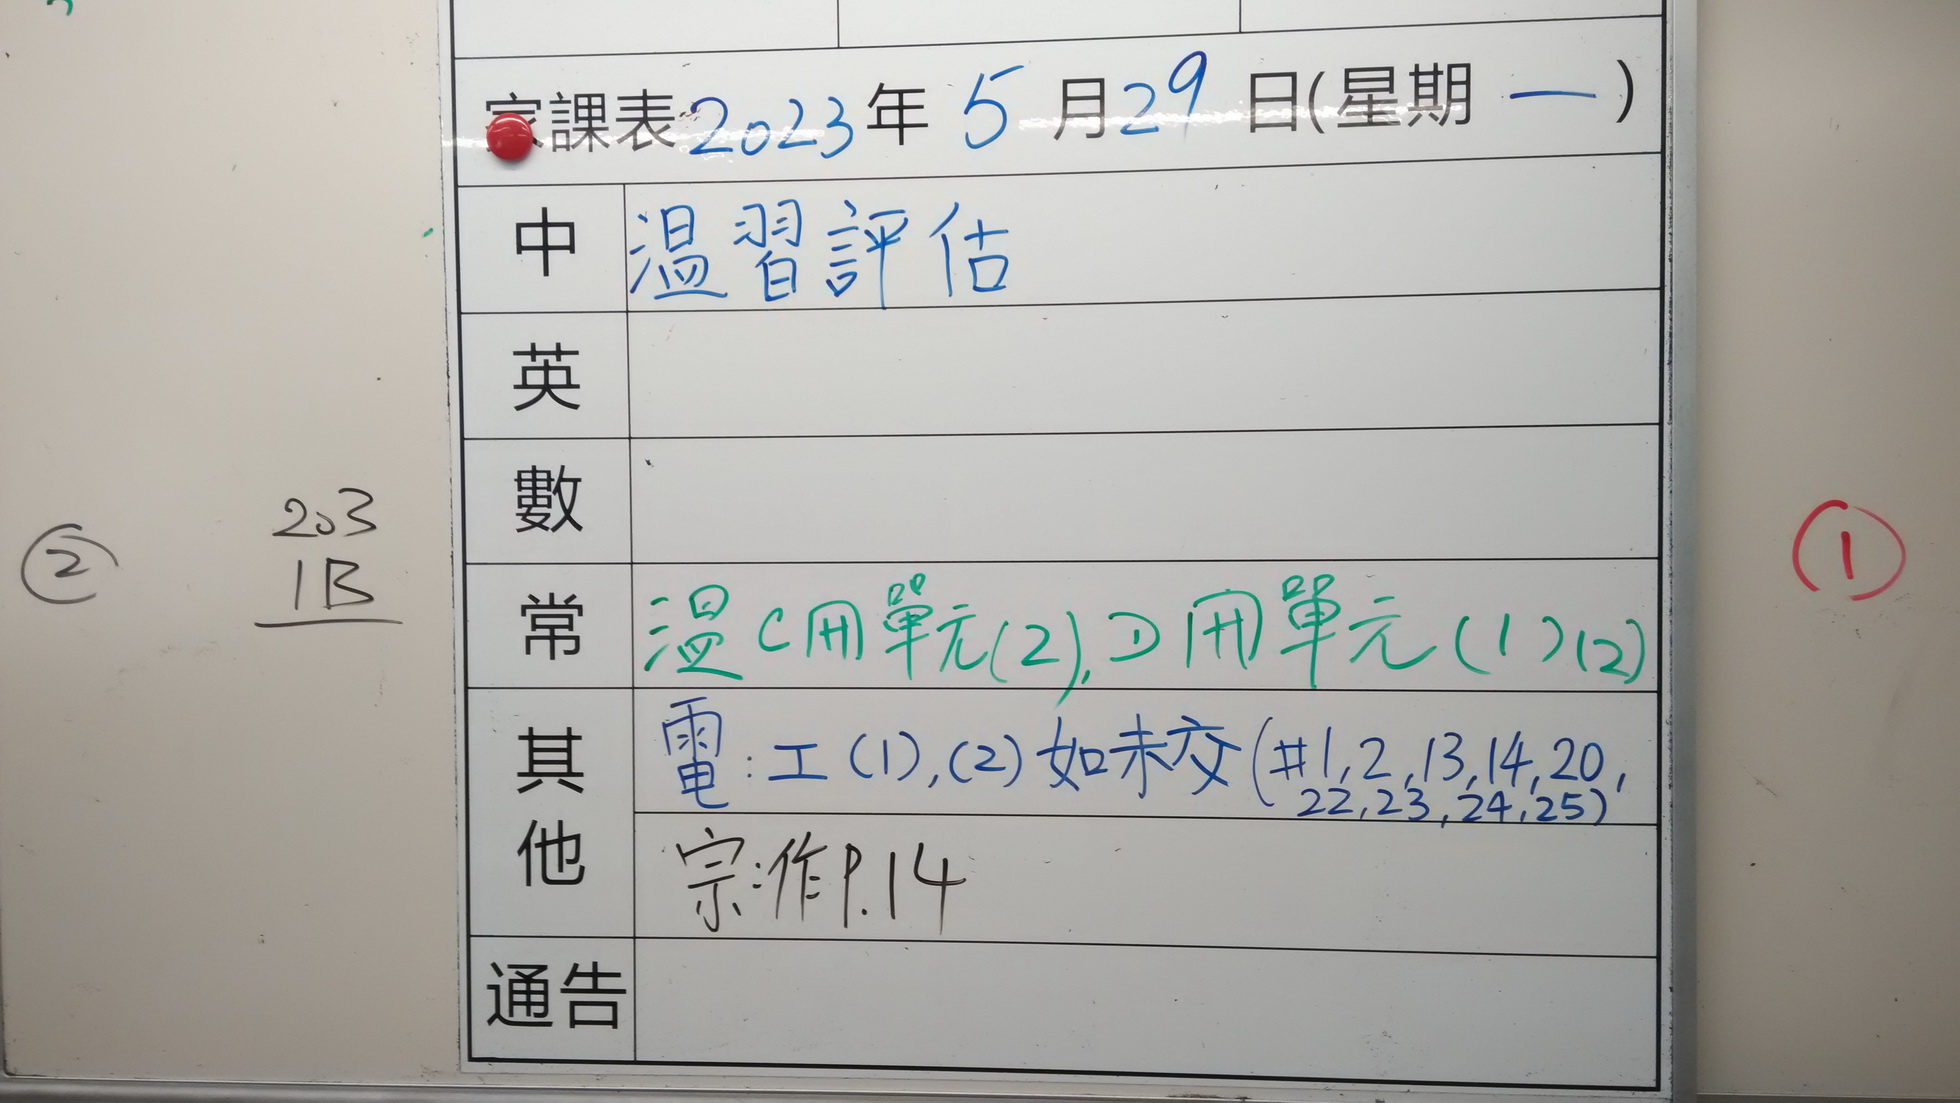 家課表 2023年 5 月29 日(星期 一 )
中 温習評估
英
數
常 温C冊單元(2), D冊單元(1)(2)
其他
電:工(1),(2)如未交(#1,2,13,14,20,
22,23,24,25)
宗:作P.14
通告
②
203
1B
①